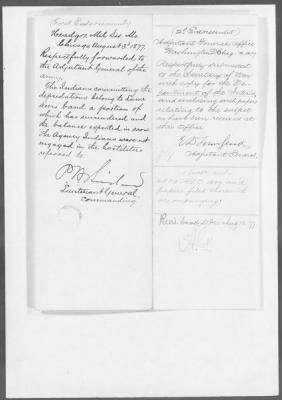 (First Endorsement)
Headqrs. Mil. Div. Mo.
Chicago August 3d 1877.
Respectfully forwarded to
the Adjutant General of the
army.
The Indians committing the
depredations belong to Lame
Deer's band a portion of
which has surrendered and
the balance expected in soon.
The Agency Indians were not
engaged in the hostilities
referred to.
P. H. Sheridan
Lieutenant General
Commanding.
(2d Endorsement)
Adjutant General's Office
Washington D.C. Aug.
Respectfully submitted
to the Secretary of War
with copy for the De-
partment of the Interior
and enclosing such papers
relating to the subject
as have been received at
this office
E D Townsend
Adjutant General.
papers filed herewith
accompanying)